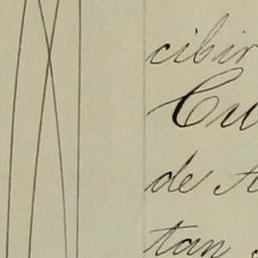 cibir
Cu
de
tan